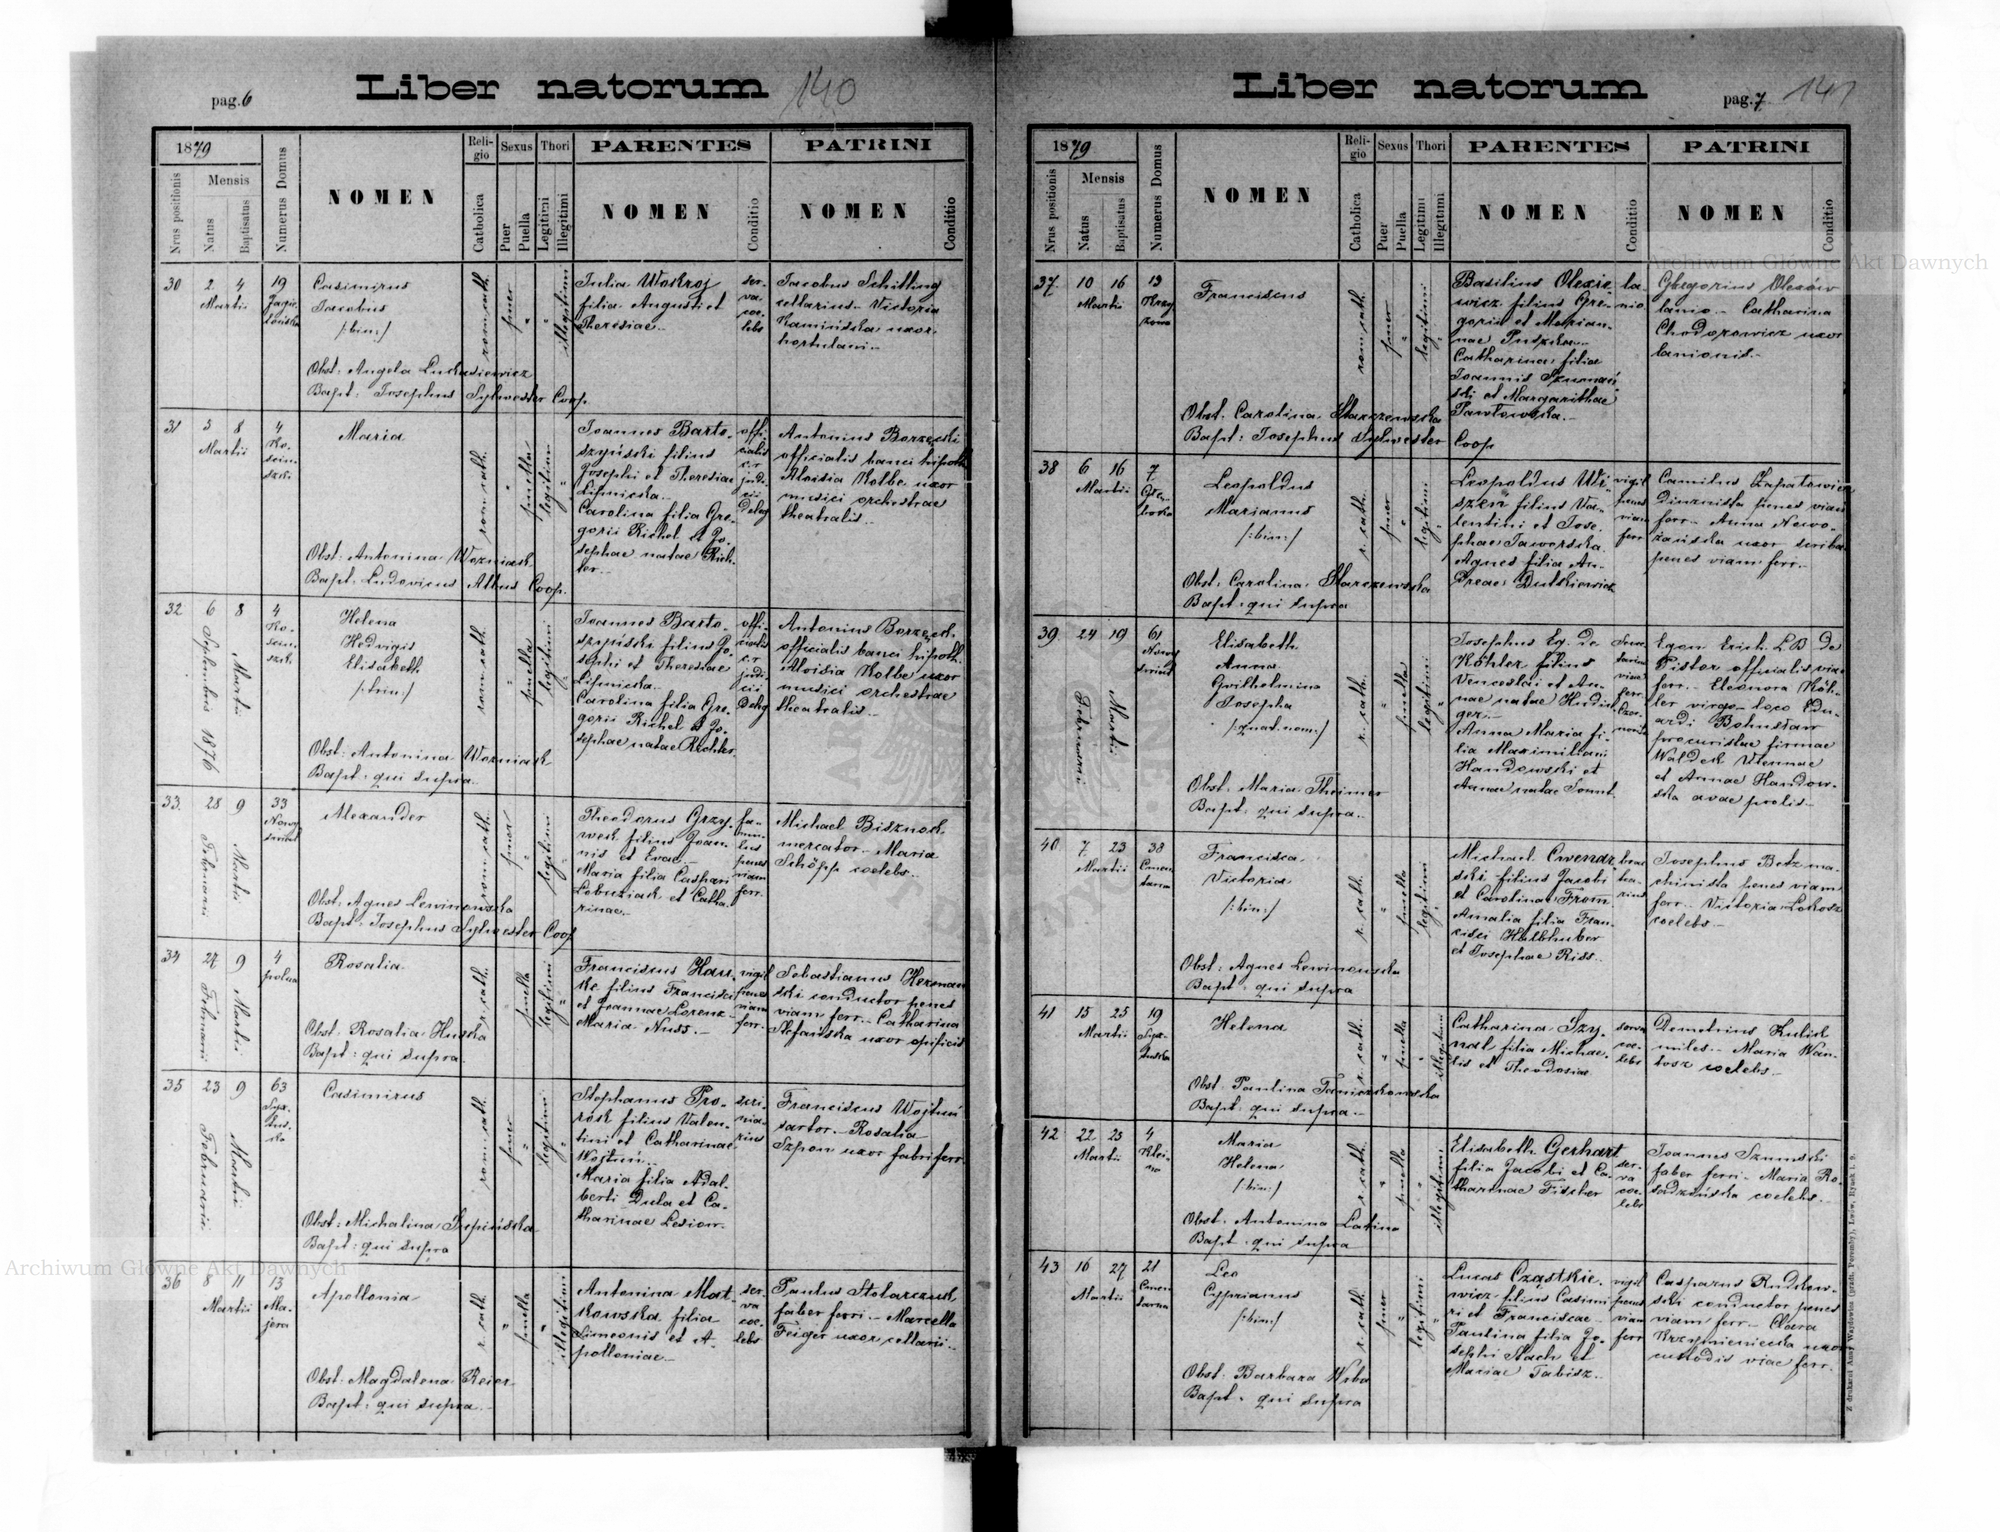 Liber natorum
pag. 6
140
1879
Nrus positionis
Mensis
Natus
Baptisatus
Numerus Domus
NOMEN
Religio
Catholica
Sexus
Puer
Puella
Thori
Legitimi
Illegitimi
PARENTES
NOMEN
Conditio
PATRINI
NOMEN
Conditio
30
2 4
Martii
19
Casimirus
Jacobus
/:bin:/
Obst: Angela Lukasiewicz
Bapt: Josephus Sylwester Coop.
rom. cath.
puer
illegitimi
Julia Wokroj
filia Augusti et
Theresiae
ser-
va
coe-
lebs
Jacobus Schilling
cellarius. Victoria
Kamińska uxor
hortulani.
31
5 8
Martii
4
Maria
Obst: Antonina Wozniak
Bapt: Ludovicus Albus Coop.
rom. cath.
puella
legitimi
Joannes Barto-
szyński filius
Josephi et Theresiae
Lipnicka.
Carolina filia Gre-
gorii Richel et Jo-
sephae natae Rich-
ter.
Antonius Borzęcki
officialis banci hipoth.
Aloisia Kolbe uxor
musici orchestrae
theatralis.
32
6 Septembris 1876
8 Martii
4
Helena
Hedvigis
Elisabeth
/:trin:/
Obst: Antonina Wozniak
Bapt: qui supra.
rom. cath.
puella
legitimi
Joannes Barto-
szyński filius Jo-
sephi et Theresiae
Lipnicka.
Carolina filia Gre-
gorii Richel et Jo-
sephae natae Richter.
Antonius Borzęcki
officialis banci hipoth.
Aloisia Kolbe uxor
musici orchestrae
theatralis.
33
28 Februarii
9 Martii
33
Alexander
Obst: Agnes Lewinowska
Bapt: Josephus Sylwester Coop
rom. cath.
puer
legitimi
Theodorus Grzy-
wek filius Joan-
nis et Evae
Maria filia Caspari
Lobuziak et Catha-
rinae.
fa-
mu-
lus
penes
viam
ferr.
mercator. Maria
Schöpp coelebs.
34
27 Februarii
9 Martii
4
polna
Rosalia
Obst: Rosalia Huska
Bapt: qui supra
r. cath.
puella
legitimi
Franciscus Hau-
ke filius Francisci
et Joannae Lorenz
Maria Nuss.
vigil
penes
viam
ferr.
Sebastianus Herman-
ski conductor penes
viam ferr. Catharina
Stefańska uxor opificis
35
23 Februarii
9 Martii
63
Casimirus
Obst: Michalina
Bapt: qui supra
rom. cath.
puer
legitimi
Stephanus Pro-
rok filius Valen-
tini et Catharinae
Wojtuń.
Maria filia Adal-
berti Dula et Ca-
tharinae
Franciscus Wojtuń
sartor. Rosalia
Szpon uxor fabri ferr.
36
8 11
Martii
13
Ma-
jera
Apollonia
Obst: Magdalena Reier
Bapt: qui supra.
r. cath.
puella
illegitimi
Antonina Mat-
kowska filia
Simeonis et A-
polloniae.
ser-
va
coe-
lebs
Paulus Stolarczuk
faber ferri. Marcella
Feiger uxor cellarii.
Liber natorum
pag. 7
141
1879
Nrus positionis
Mensis
Natus
Baptisatus
Numerus Domus
NOMEN
Religio
Catholica
Sexus
Puer
Puella
Thori
Legitimi
Illegitimi
PARENTES
NOMEN
Conditio
PATRINI
NOMEN
Conditio
37
10 16
Martii
Franciscus
Obst. Carolina Starczewska
Bapt: Josephus Sylwester Coop
rom. cath.
puer
legitimi
Basilius Olexie-
wicz filius Gre-
gorii et Marian-
nae
Catharina filia
Joannis Szumań-
ski et Margarithae
Pawłowska.
la-
nio
Gregorius
lanio. Catharina
Chodorowicz uxor
lanionis.
38
6 16
Martii
7
Leopoldus
Marianus
/:bin:/
Obst: Carolina Starczewska
Bapt: qui supra
r. cath.
puer
legitimi
Leopoldus Wi-
szen filius Va-
lentini et Jose-
phae Jaworska.
Agnes filia An-
dreae Dutkiewicz
vigil
penes
viam
ferr
Camilus Zapałowicz
Diurnista penes viam
ferr. Anna Nowo-
żańska uxor scribae
penes viam ferr.
39
24 Februarii
19 Martii
61
Elisabeth
Anna
Gvilhelmina
Josepha
/:quat. nom:/
Obst: Maria Theimer
Bapt: qui supra.
r. cath.
puella
legitimi
Josephus Eq. de
Köhler filius
Venceslai et An-
nae natae
Anna Maria fi-
lia Maximiliani
Handowski et
Annae natae Sonnt.
Egon Erich L.B. De
Pistor officialis viae
ferr. Eleonora Köh-
ler virgo loco Edu-
ardi
procuristae firmae
Waldek Viennae
et Annae Handow-
ska avae prolis.
40
7 23
Martii
38
Francisca
Victoria
/:bin:/
Obst: Agnes Lewinowska
Bapt: qui supra
r. cath.
puella
legitimi
Michael Cwenar-
ski filius Jacobi
et Carolinae From
Amalia filia Fran-
cisci Halbhuber
et Josephae Riss.
Josephus Betz ma-
chinista penes viam
ferr. Victoria Lokosz
coelebs.
41
15 25
Martii
19
Helena
Obst: Paulina
Bapt: qui supra.
r. cath.
puella
illegitimi
Catharina Szy-
nal filia Michae-
lis et Theodosiae
serva
coe-
lebs
Demetrius Kulick
miles. Maria Wan-
tosz coelebs.
42
22 25
Martii
4
Maria
Helena
/:bin:/
Obst: Antonina Latino
Bapt: qui supra
r. cath.
puella
illegitimi
Elisabeth Gerhart
filia Jacobi et Ca-
tharinae Fischer
ser-
va
coe-
lebs
Joannes Szumski
faber ferri. Maria Ro-
sadzińska coelebs.
43
16 27
Martii
21
Leo
Cyprianus
/:bin:/
Obst: Barbara Wrba
Bapt: qui supra
r. cath.
puer
legitimi
Lucas Cząstkie-
wicz filius Casimi-
ri et Franciscae
Paulina filia Jo-
sephi Stach et
Mariae Tabisz.
vigil
penes
viam
ferr
Casparus Rudkow-
ski conductor penes
viam ferr. Clara
Krzymieniecka uxor
custodis viae ferr.
Z drukarni Anny Wajdowicz (przedt. Poremby), Lwów, Rynek l. 9.
Archiwum Główne Akt Dawnych
Archiwum Główne Akt Dawnych